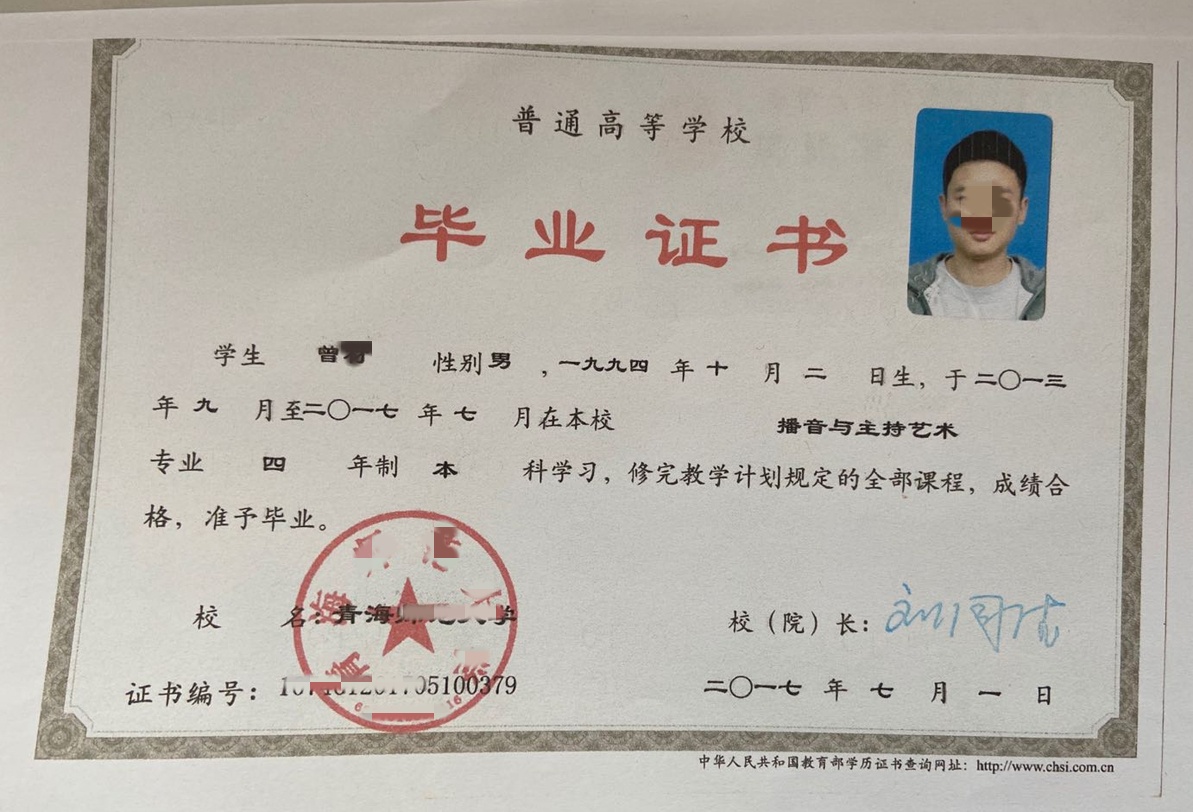 普通高等学校
毕业证书
学生 曾 性别 男 ,一九九四 年 十 月 二 日生, 于二〇一三
年 九 月至二〇一七 年 七 月在本校 播音与主持艺术
专业 四 年制 本 科学习, 修完教学计划规定的全部课程, 成绩合
格, 准予毕业。
校 名: 青海 大学
校（院）长:
证书编号: 201705100379
二〇一七 年 七 月 一 日
中华人民共和国教育部学历证书查询网址: http://www.chsi.com.cn